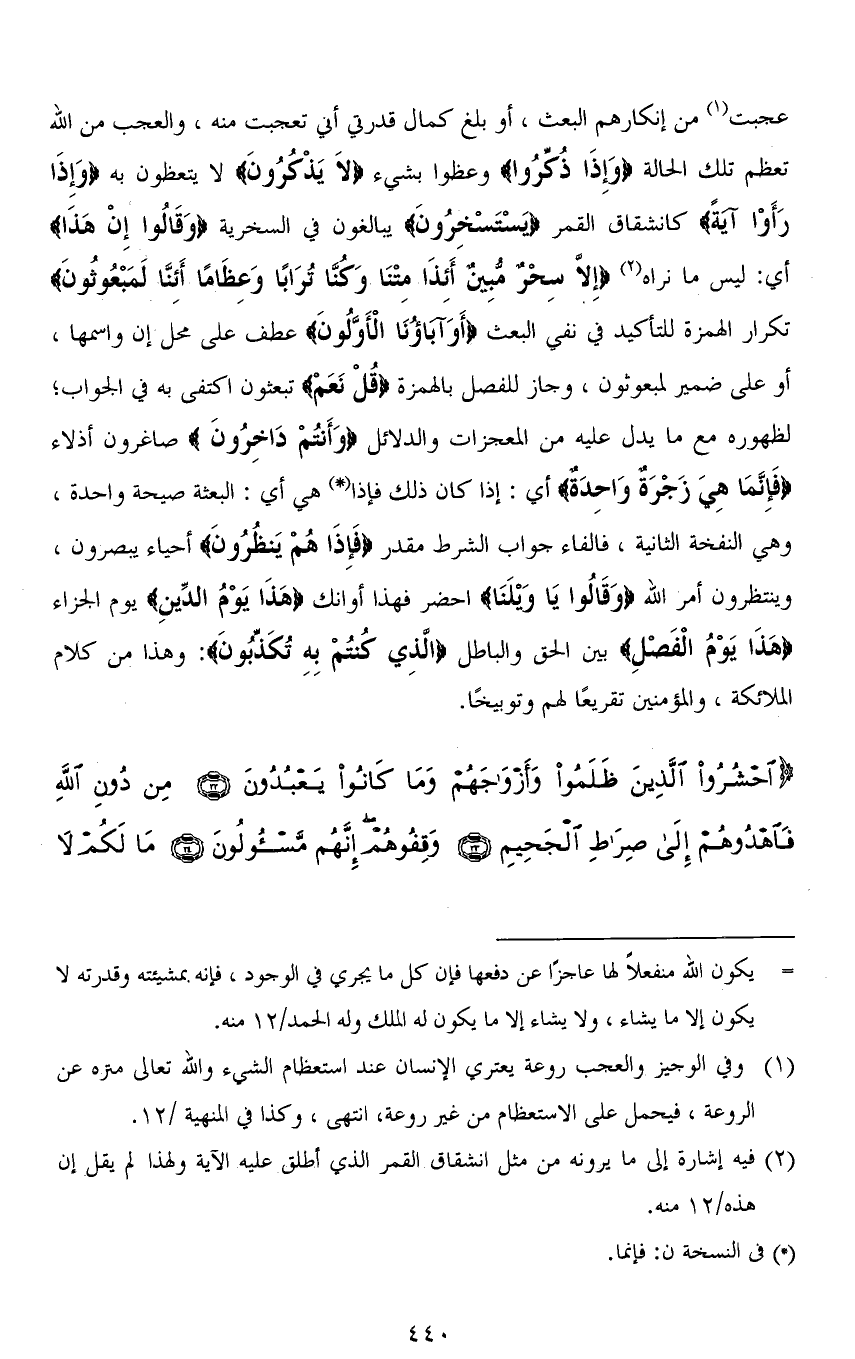 عجبت(١) من إنكارهم البعث ، أو بلغ كمال قدرتي أني تعجبت منه ، والعجب من الله
تعظم تلك الحالة ﴿وَإِذَا ذُكِّرُوا﴾ وعظوا بشيء ﴿لاَ يَذْكُرُونَ﴾ لا يتعظون به ﴿وَإِذَا
رَأَوْا آيَةً﴾ كانشقاق القمر ﴿يَسْتَسْخِرُونَ﴾ يبالغون في السخرية ﴿وَقَالُوا إِنْ هَذَا﴾
أي: ليس ما نراه(٢) ﴿إِلاَّ سِحْرٌ مُّبِينٌ أَئِذَا مِتْنَا وَكُنَّا تُرَابًا وَعِظَامًا أَئِنَّا لَمَبْعُوثُونَ﴾
تكرار الهمزة للتأكيد في نفي البعث ﴿أَوَآبَاؤُنَا الْأَوَّلُونَ﴾ عطف على محل إن واسمها ،
أو على ضمير لمبعوثون ، وجاز للفصل بالهمزة ﴿قُلْ نَعَمْ﴾ تبعثون اكتفى به في الجواب؛
لظهوره مع ما يدل عليه من المعجزات والدلائل ﴿وَأَنتُمْ دَاخِرُونَ ﴾ صاغرون أذلاء
﴿فَإِنَّمَا هِيَ زَجْرَةٌ وَاحِدَةٌ﴾ أي : إذا كان ذلك فإذا(*) هي أي : البعثة صيحة واحدة ،
وهي النفخة الثانية ، فالفاء جواب الشرط مقدر ﴿فَإِذَا هُمْ يَنظُرُونَ﴾ أحياء يبصرون ،
وينتظرون أمر الله ﴿وَقَالُوا يَا وَيْلَنَا﴾ احضر فهذا أوانك ﴿هَذَا يَوْمُ الدِّينِ﴾ يوم الجزاء
﴿هَذَا يَوْمُ الْفَصْلِ﴾ بين الحق والباطل ﴿الَّذِي كُنتُمْ بِهِ تُكَذِّبُونَ﴾: وهذا من كلام
الملائكة ، والمؤمنين تقريعًا لهم وتوبيخًا.
﴿ٱحْشُرُوا۟ ٱلَّذِينَ ظَلَمُوا۟ وَأَزْوَٰجَهُمْ وَمَا كَانُوا۟ يَعْبُدُونَ ٢٢ مِن دُونِ ٱللَّهِ
فَٱهْدُوهُمْ إِلَىٰ صِرَٰطِ ٱلْجَحِيمِ ٢٣ وَقِفُوهُمْ ۖ إِنَّهُم مَّسْـُٔولُونَ ٢٤ مَا لَكُمْ لَا
= يكون الله منفعلاً لها عاجزًا عن دفعها فإن كل ما يجري في الوجود ، فإنه بمشيئته وقدرته لا
يكون إلا ما يشاء ، ولا يشاء إلا ما يكون له الملك وله الحمد/١٢ منه.
(١) وفي الوجيز والعجب روعة يعتري الإنسان عند استعظام الشيء والله تعالى منزه عن
الروعة ، فيحمل على الاستعظام من غير روعة، انتهى ، وكذا في المنهية /١٢.
(٢) فيه إشارة إلى ما يرونه من مثل انشقاق القمر الذي أطلق عليه الآية ولهذا لم يقل إن
هذه/١٢ منه.
(*) في النسخة ن: فإنما.
٤٤٠